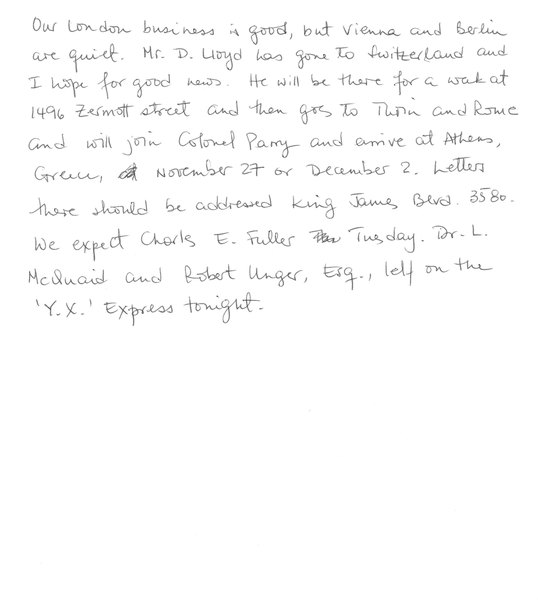 Our London business is good, but Vienna and Berlin
are quiet. Mr. D. Lloyd has gone to Switzerland and
I hope for good news. He will be there for a weak at
1496 Zermott street and then goes to Thorin and Rome
and will join Colonel Parry and arrive at Athens,
Greece, November 27 or December 2. Letters
there should be addressed King James Blvd. 3580.
We expect Charls E. Fuller Tuesday. Dr. L.
McQuaid and Robert Unger, Esq., left on the
'Y.X.' Express tonight.